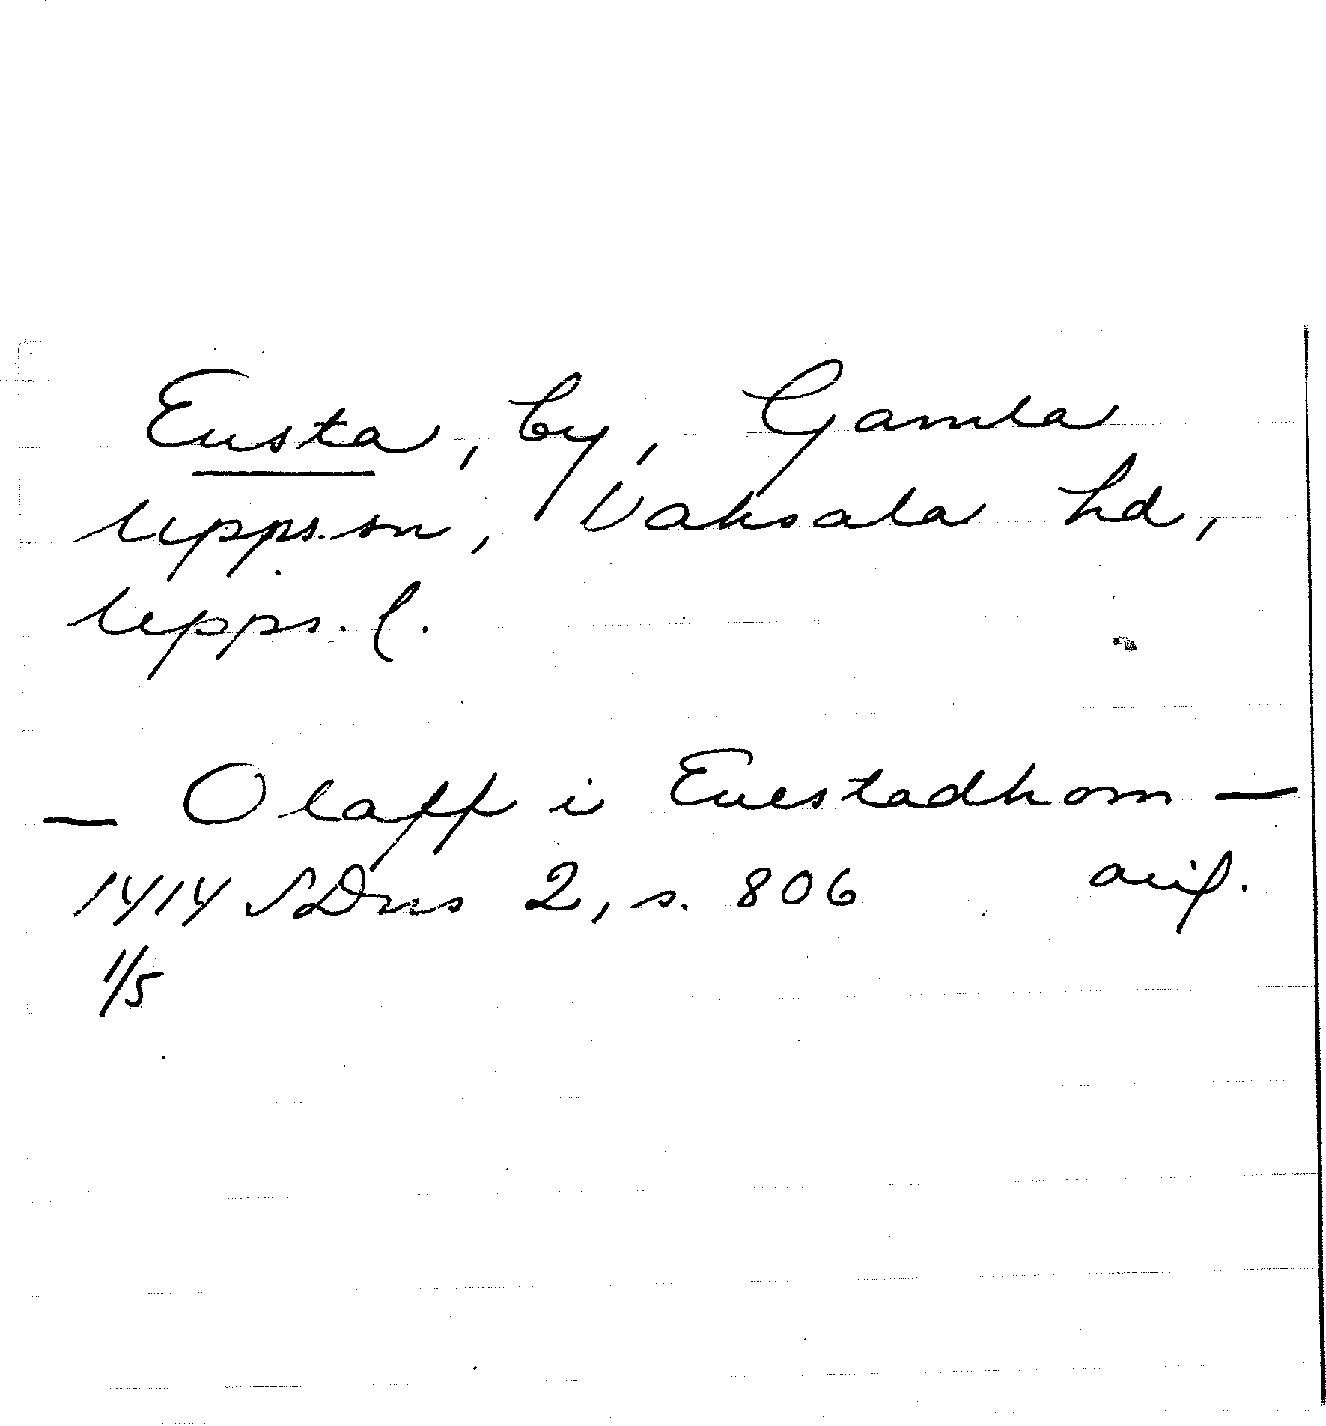 Eusta, by, Gamla
Upps. sn, Vaksala hd,
Upps. l.
— Olaff i Euestadhom —
1414 SDns 2, s. 806 avs.
1/5